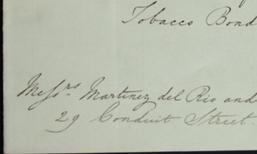 Tobacco Bond
Messrs Martinez del Rio and
29 Conduit Street.